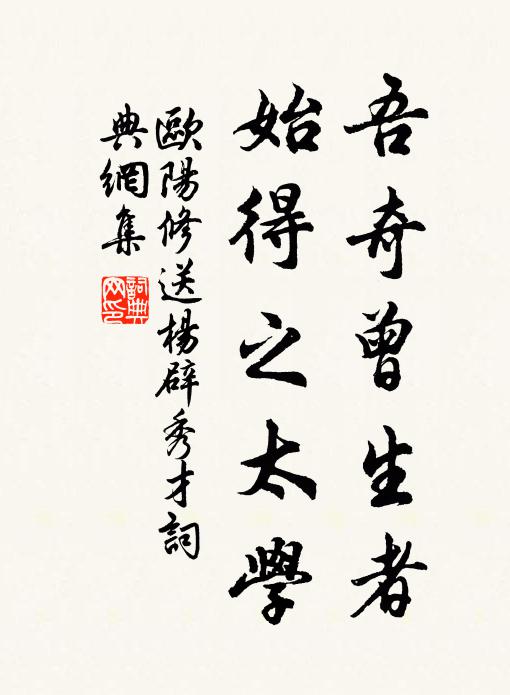 吾奇曾生者
始得之太學
歐陽修送楊辟秀才詞
典網集
詞典
网印